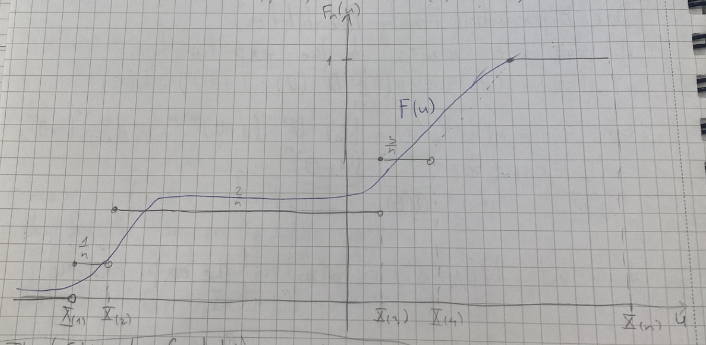 Fn(u)
1
F(u)
3/n
2/n
1/n
X(1) X(2) X(3) X(4) X(n) u